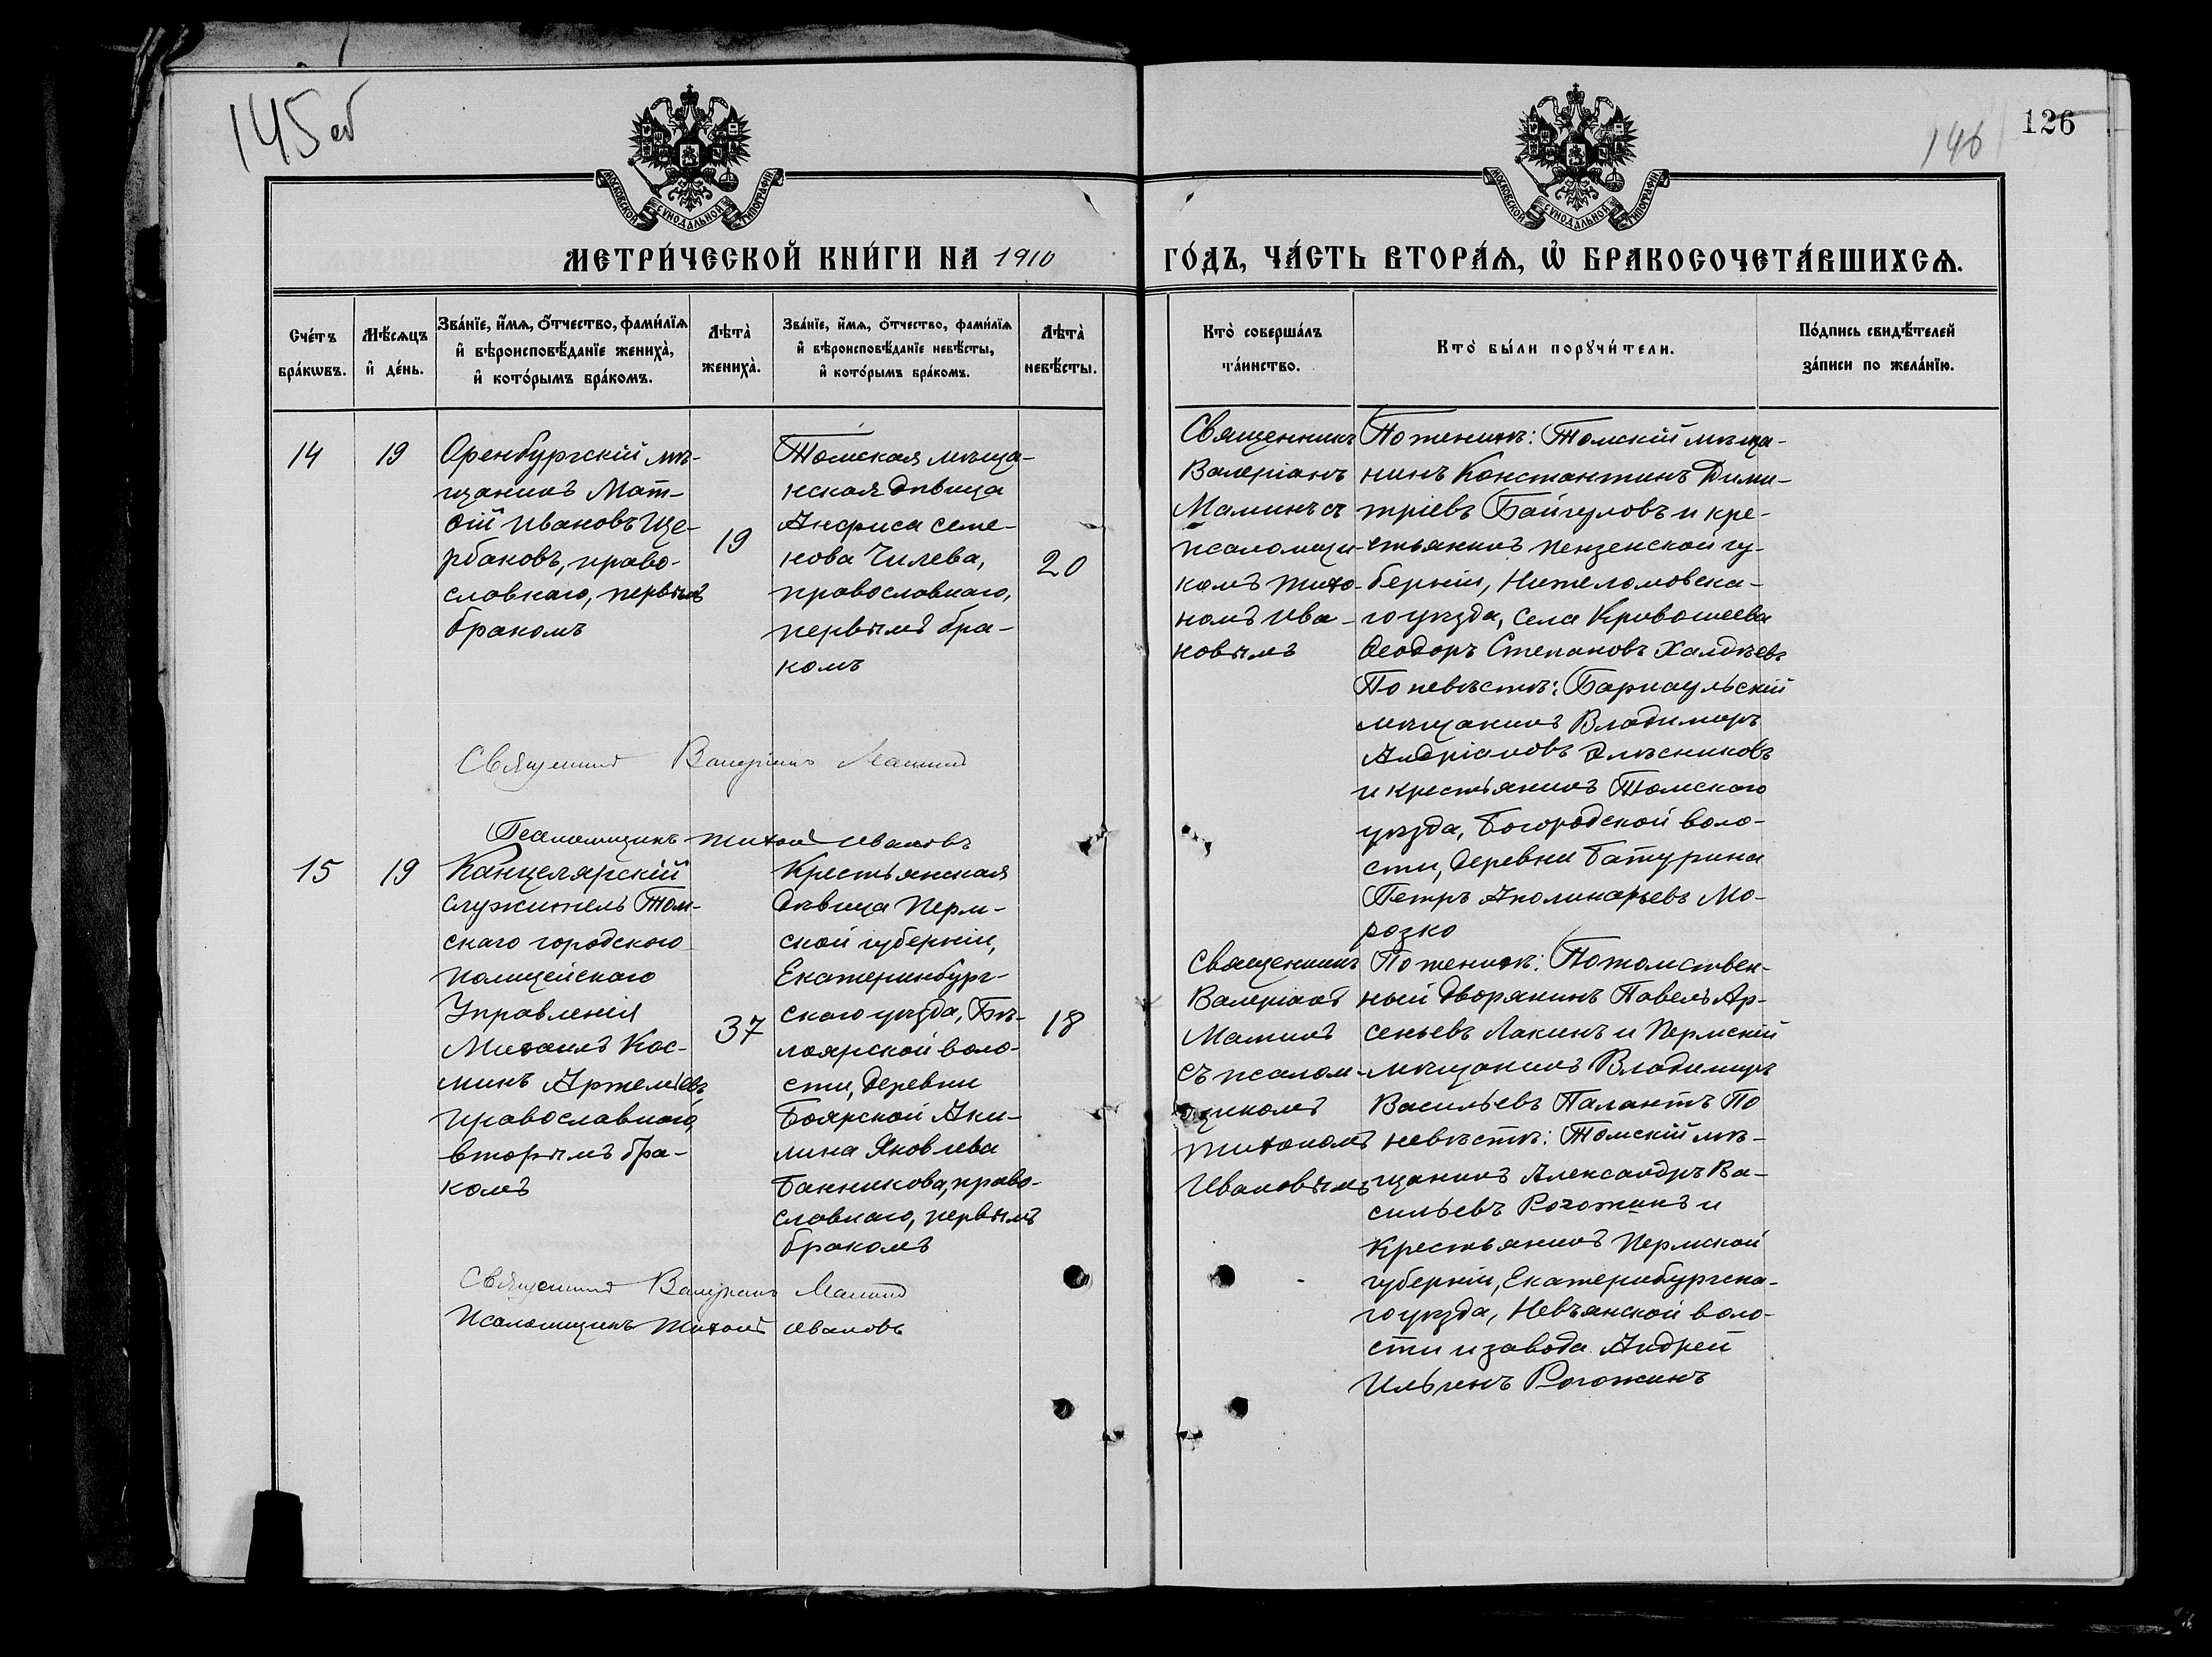 145 об
146
126
МОСКОВСКОЙ СѴНОДАЛЬНОЙ ТИПОГРАФІИ
МОСКОВСКОЙ СѴНОДАЛЬНОЙ ТИПОГРАФІИ
МЕТРИ́ЧЕСКОЙ КНИ́ГИ НА 1910 ГО́ДЪ, ЧА́СТЬ ВТОРА́Ѧ, Ѡ҆ БРАКОСОЧЕТА́ВШИХСѦ.
Сче́тъ
бра́кѡвъ.
Мѣ́сѧцъ
и҆ де́нь.
Зва́нїе, и҆́мѧ, ѻ҆́тчество, фами́лїѧ
и҆ вѣроисповѣ́данїе жениха̀,
и҆ кото́рымъ бра́комъ.
Лѣта̀
жениха̀.
Зва́нїе, и҆́мѧ, ѻ҆́тчество, фами́лїѧ
и҆ вѣроисповѣ́данїе невѣ́сты,
и҆ кото́рымъ бра́комъ.
Лѣта̀
невѣ́сты.
Кто̀ соверша́лъ
та́инство.
Кто̀ бы́ли порꙋчи́тели.
По́дпись свидѣ́телей
за́писи по жела́нїю.
14
19
Оренбургскій мѣ-
щанинъ Мат-
ѳій Ивановъ Ще-
рбаковъ, право-
славнаго, первымъ
бракомъ
19
Томская мѣща-
нская дѣвица
Анфиса Семе-
нова Чилева,
православнаго,
первымъ бра-
комъ
20
Священникъ
Валеріанъ
Маминъ съ
псаломщи-
комъ Тихо-
номъ Ива-
новымъ
По женихѣ: Томскій мѣща-
нинъ Константинъ Дими-
тріевъ Байгуловъ и кре-
стьянинъ Пензенской гу-
берніи, Нижеломовска-
го уѣзда, села Кривошеева
Ѳеодоръ Степановъ Халдѣевъ
По невѣстѣ: Барнаульскій
мѣщанинъ Владимиръ
Андріановъ Змѣсниковъ
и крестьянинъ Томскаго
уѣзда, Богородской воло-
сти, деревни Батурина
Петръ Аполинарьевъ Мо-
розко
Священникъ Валеріанъ Маминъ
Псаломщикъ Тихонъ Ивановъ
15
19
Канцелярскій
служитель Том-
скаго городского
полицейскаго
Управленія
Михаилъ Кос-
минъ Артемьевъ,
православнаго,
вторымъ бра-
комъ
37
Крестьянская
дѣвица Перм-
ской губерніи,
Екатеринбург-
скаго уѣзда, Бѣ-
лоярской воло-
сти, деревни
Боярской Аки-
лина Яковлева
Банникова, право-
славнаго, первымъ
бракомъ
18
Священникъ
Валеріанъ
Маминъ
съ псалом-
щикомъ
Тихономъ
Ивановымъ
По женихѣ: Потомствен-
ный дворянинъ Павелъ Ар-
сеньевъ Лакинъ и Пермскій
мѣщанинъ Владимиръ
Васильевъ Палантъ По
невѣстѣ: Томскій мѣ-
щанинъ Александръ Ва-
сильевъ Рогожинъ и
крестьянинъ Пермской
губерніи, Екатеринбургска-
го уѣзда, Невъянской воло-
сти и завода Андрей
Ильинъ Рогожинъ
Священникъ Валеріанъ Маминъ
Псаломщикъ Тихонъ Ивановъ